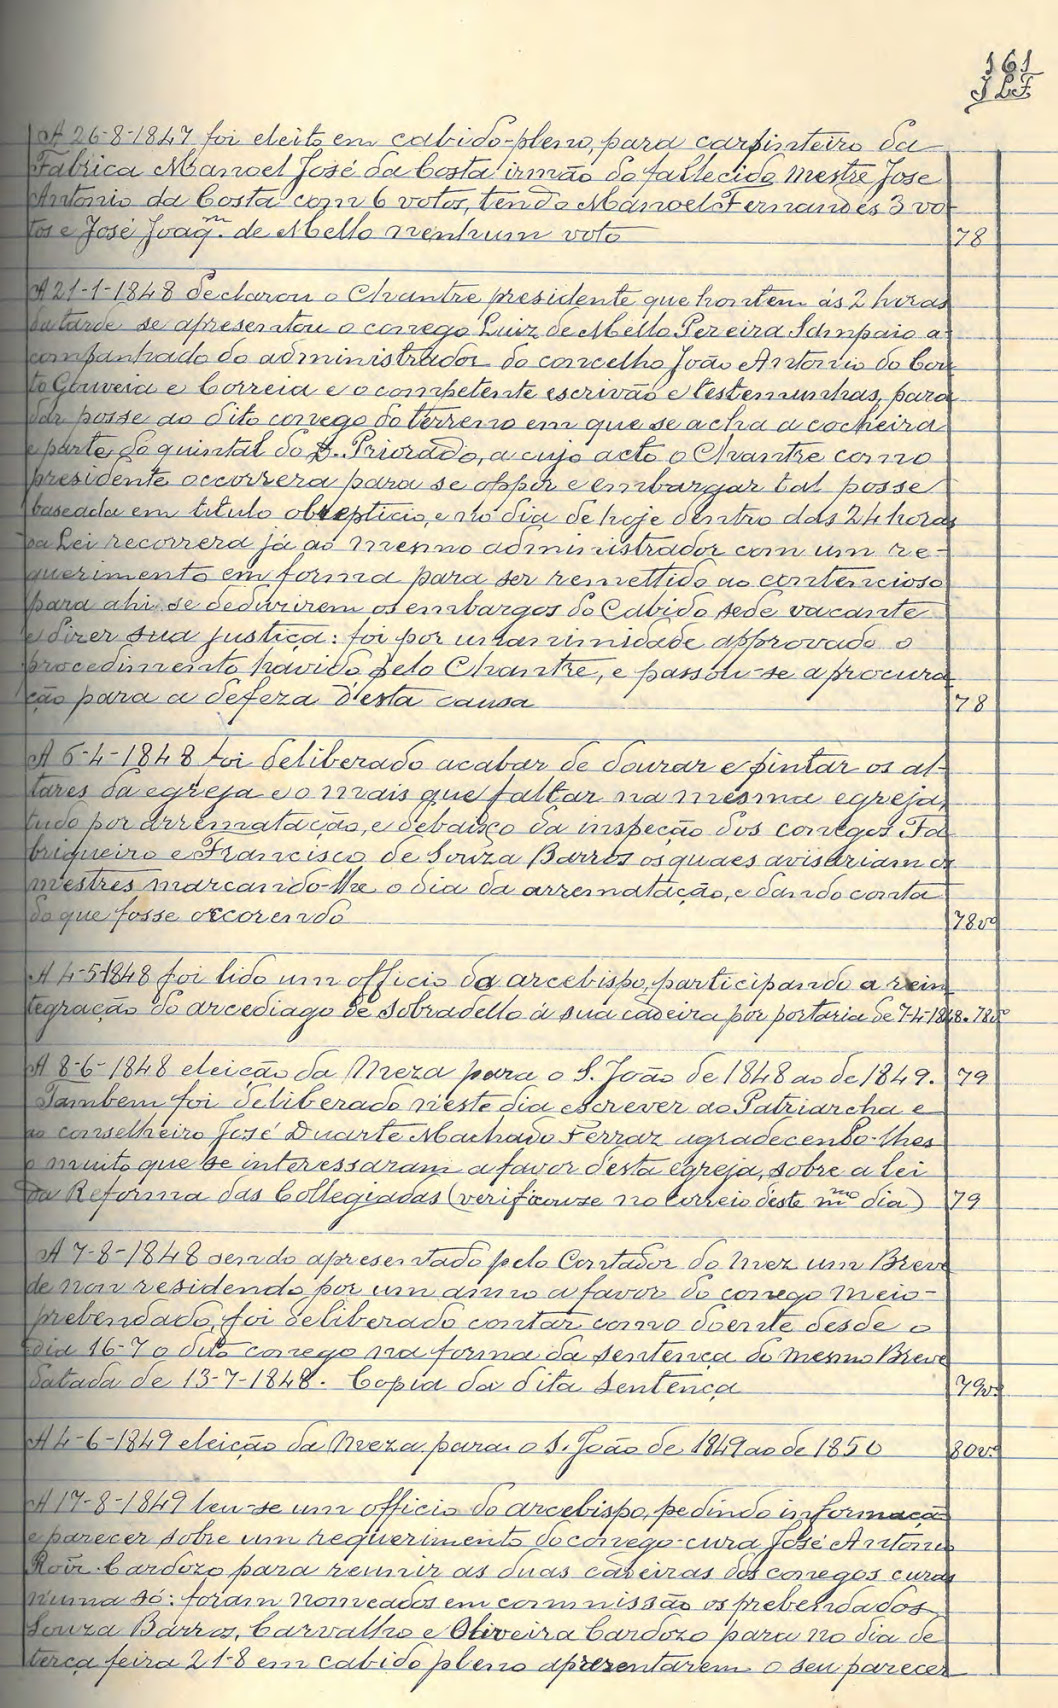 161
J L F
A 26-8-1847 foi eleito em cabido-pleno, para carpinteiro da
Fabrica Manoel José da Costa irmão do fallecido Mestre José
Antonio da Costa com 6 votos, tendo Manoel Fernandes 3 vo-
tos e José Joaqm. de Mello nenhum voto 78
A 21-1-1848 declarou o Chantre presidente que hontem ás 2 horas
da tarde se apresentou o conego Luiz de Mello Pereira Sampaio a-
companhado do administrador do concelho João Antonio do Cou-
to Gouveia e Correia e o competente escrivão e testemunhas, para
dar posse ao dito conego do terreno em que se acha a cocheira
e parte do quintal do D. Priorado, a cujo acto o Chantre como
presidente occorrera para se oppôr e embargar tal posse
baseada em titulo obreptício, e no dia de hoje dentro das 24 horas
da Lei recorrera já ao mesmo administrador com um re-
querimento em forma para ser remettido ao contencioso
para ahi se deduzirem os embargos do Cabido sede vacante
e dizer sua justiça: foi por unanimidade approvado o
procedimento havido pelo Chantre, e passou-se a procura-
ção para a defeza d'esta causa 78
A 6-4-1848 foi deliberado acabar de dourar e pintar os al-
tares da egreja e o mais que faltar na mesma egreja,
tudo por arrematação, e debaixo da inspeção dos conegos Fa-
briqueiro e Francisco de Souza Barros os quaes avisariam os
mestres marcando-lhe o dia da arrematação, e dando conta
do que fosse occorendo 78vº
A 4-5-1848 foi lido um officio do arcebispo, participando a rein-
tegração do arcediago de Sobradello á sua cadeira por portaria de 7-4-1848. 78vº
A 8-6-1848 eleição da Meza para o S. João de 1848 ao de 1849. 79
Tambem foi deliberado n'este dia escrever ao Patriarcha e
ao conselheiro José Duarte Machado Ferraz agradecendo-lhes
o muito que se interessaram a favor desta egreja, sobre a lei
da Reforma das Collegiadas (verificou-se no correio d'este mmo dia) 79
A 7-8-1848 sendo apresentado pelo Contador do mez um Breve
de non residendo por um anno a favor do conego meio-
prebendado, foi deliberado contar como doente desde o
dia 16-7 o dito conego na forma da sentença do mesmo Breve
datada de 13-7-1848. Copia da dita sentença 79v.
A 4-6-1849 eleição da Meza para o S. João de 1849 ao de 1850 80vº
A 17-8-1849 leu-se um officio do arcebispo, pedindo informação
e parecer sobre um requerimento do conego-cura José Antonio
Roiz. Cardozo para reunir as duas cadeiras dos conegos curas
n'uma só: foram nomeados em commissão os prebendados
Souza Barros, Carvalho e Oliveira Cardozo para no dia de
terça feira 21-8 em cabido pleno apresentarem o seu parecer